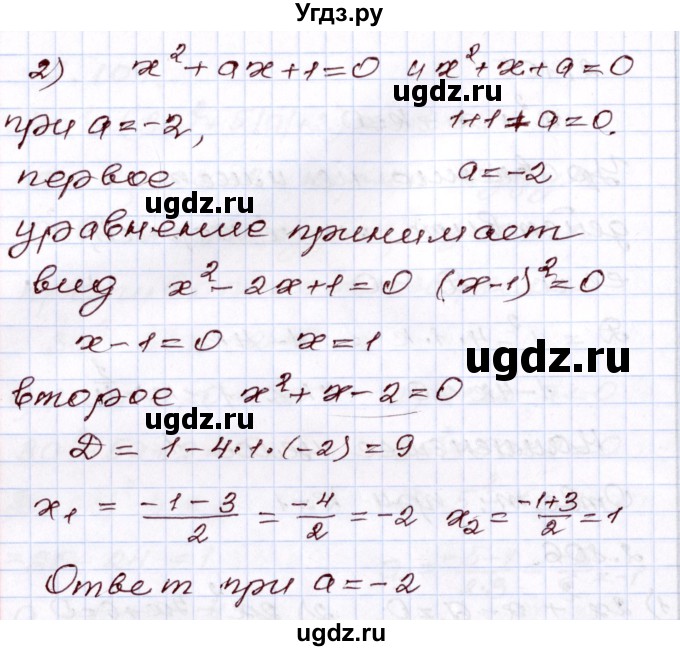 Угдз.ру
2) x² + ax + 1 = 0 и x² + x + a = 0
ugdz.ru
при a = -2, 1 + 1 + a = 0.
первое a = -2
ugdz.ru
уравнение принимает
вид x² - 2x + 1 = 0 (x-1)² = 0
x - 1 = 0 x = 1
ugdz.ru
второе x² + x - 2 = 0
ugdz.ru
Д = 1 - 4·1·(-2) = 9
x₁ = (-1-3)/2 = -4/2 = -2 x₂ = (-1+3)/2 = 1
ugdz.ru
Ответ при a = -2
ugdz.ru